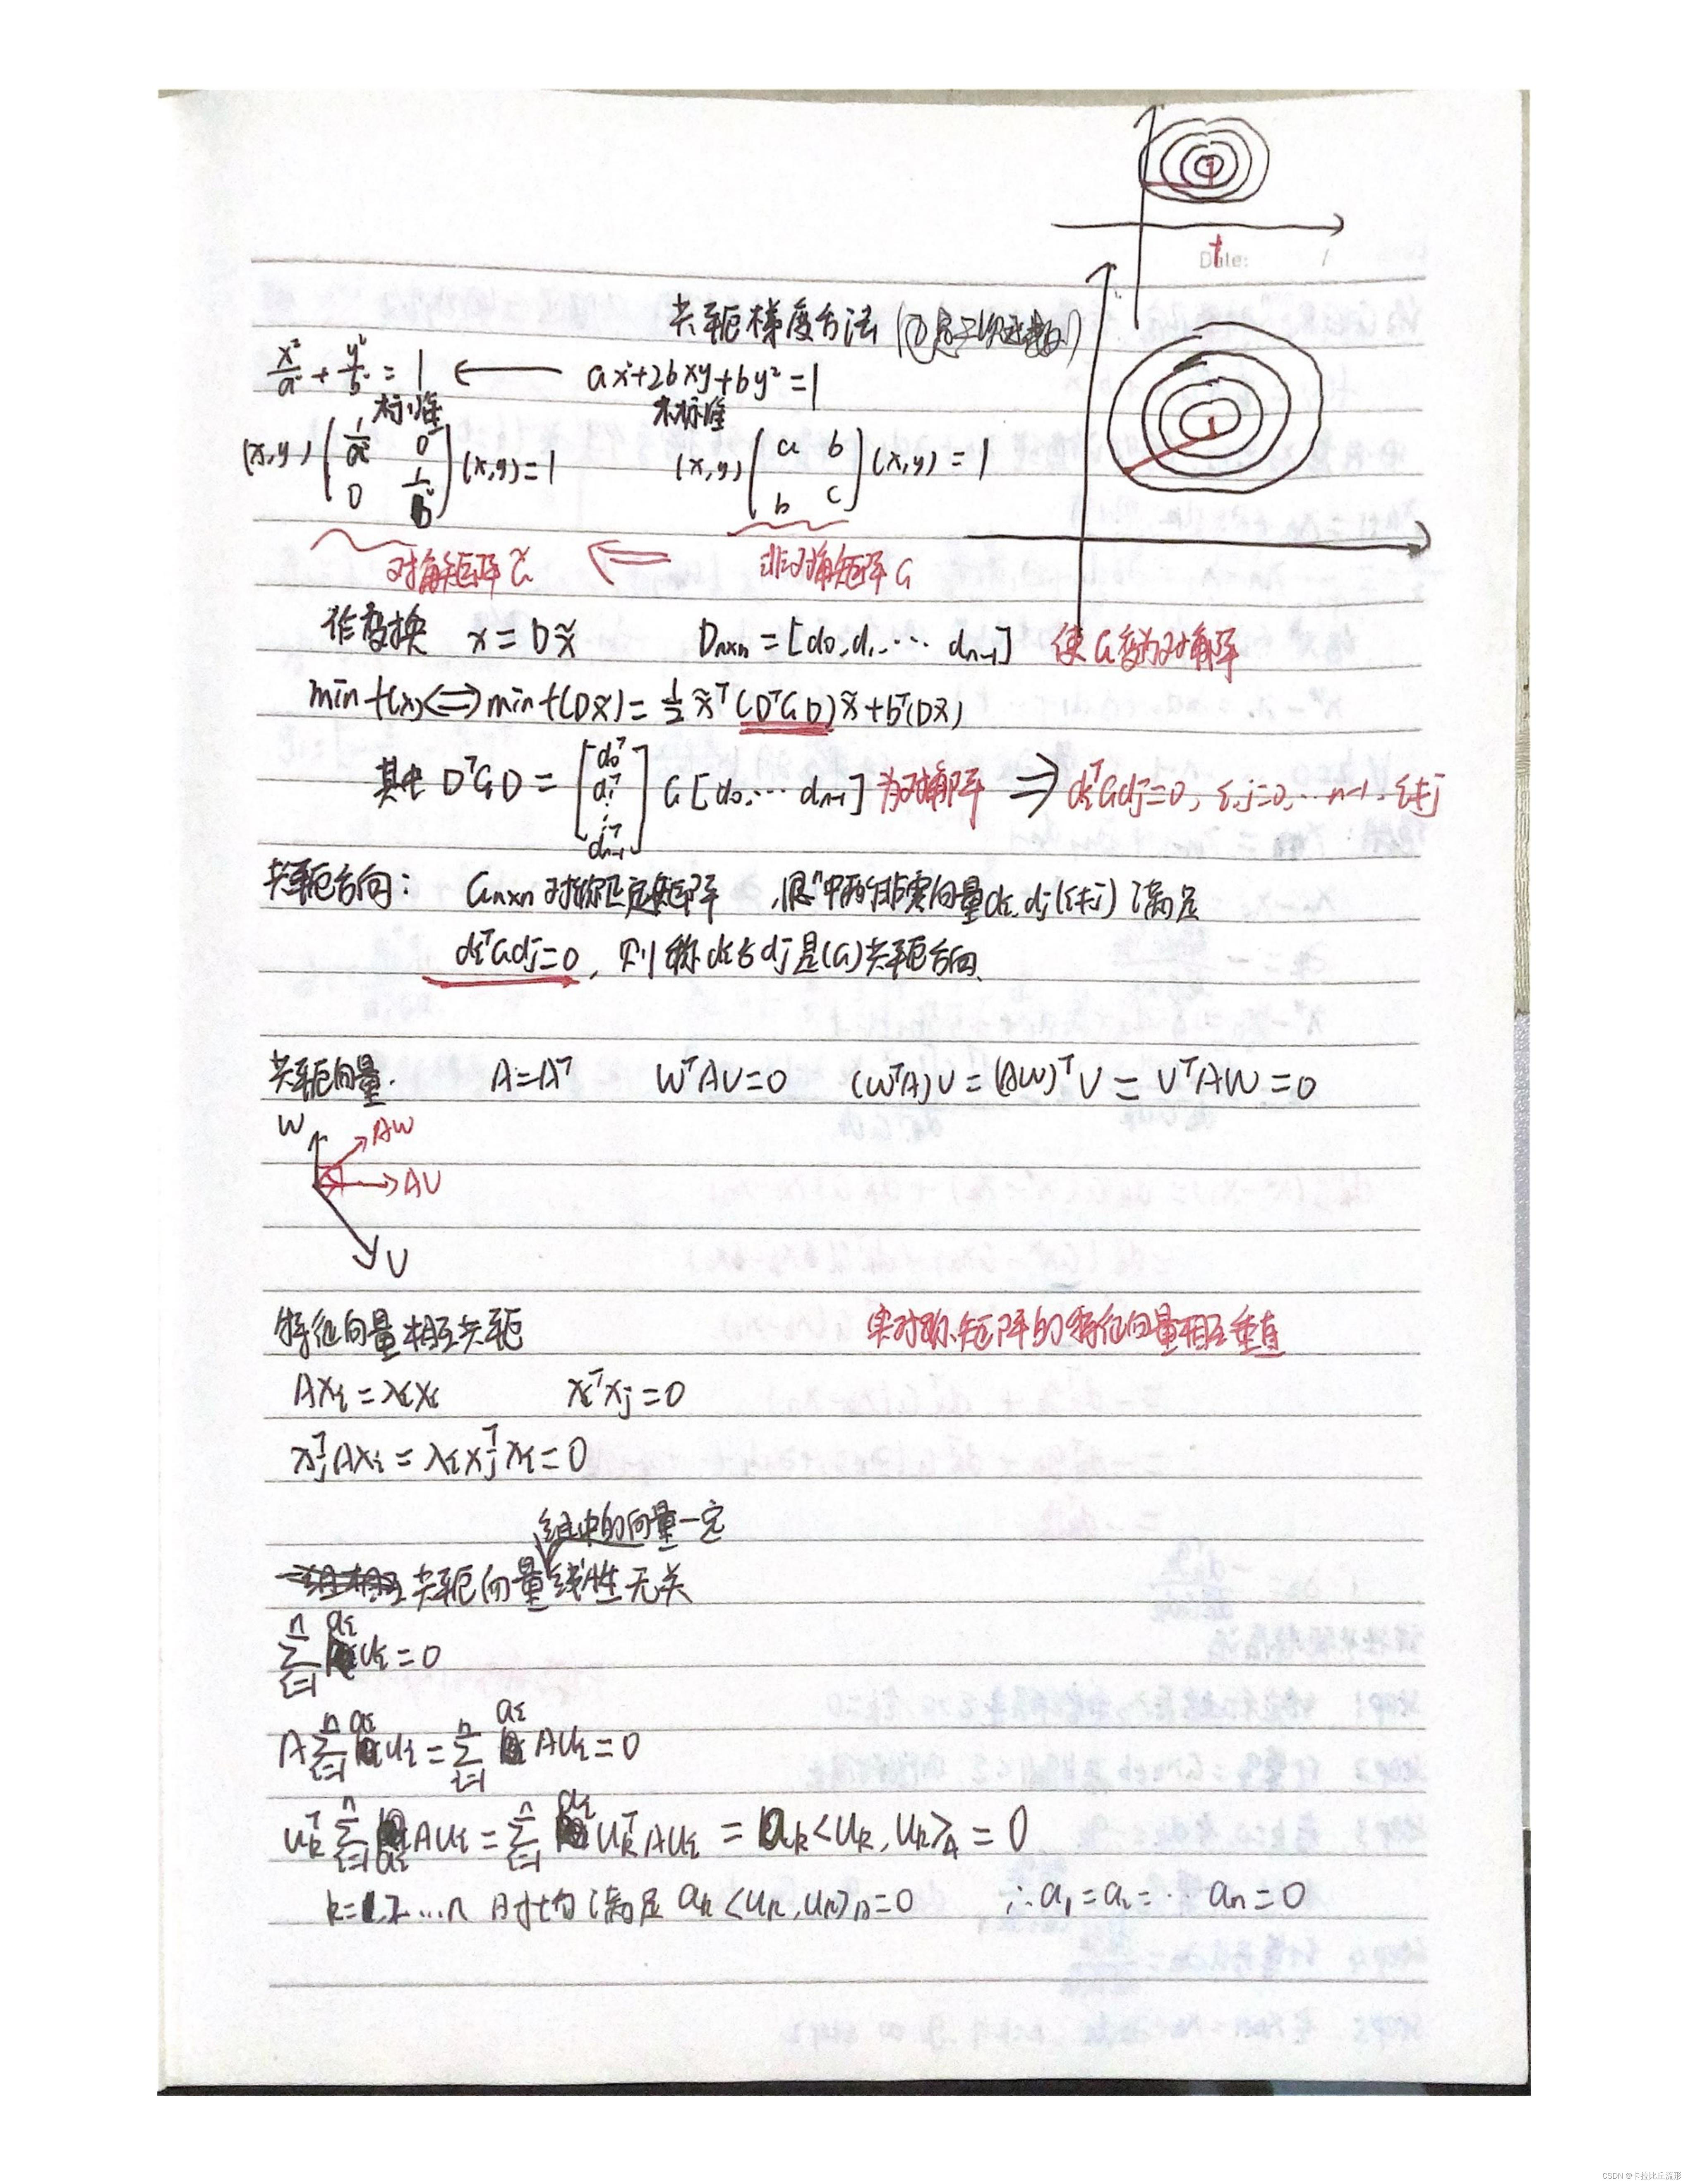 Date: /
共轭梯度方法(正定二次函数)
x²/a² + y²/b² = 1 ← ax²+2bxy+by²=1
标准 未标准
(x,y) [1/a² 0; 0 1/b²] (x,y) = 1 (x,y) [a b; b c] (x,y) = 1
对角矩阵 G̃ ⇐ 非对角矩阵 G
作变换 x = Dx̃ Dₙₓₙ = [d₀, d₁, ⋯ dₙ₋₁] 使G变为对角阵
min f(x) ⟺ min f(Dx̃) = ½ x̃ᵀ(DᵀGD)x̃ + bᵀ(Dx̃)
其中 DᵀGD = [d₀ᵀ; d₁ᵀ; ⋮; dₙ₋₁ᵀ] G [d₀, ⋯ dₙ₋₁] 为对角阵 ⇒ dᵢᵀGdⱼ=0, i,j=0,⋯n-1. i≠j
共轭方向: Gₙₓₙ 对称正定矩阵, 中的非零向量dᵢ, dⱼ(i≠j) 满足
dᵢᵀGdⱼ=0, 则称dᵢ与dⱼ是(G)共轭方向
共轭向量. A=Aᵀ WᵀAV=0 (WᵀA)V = (AW)ᵀV = VᵀAW = 0
W AW
AV
V
特征向量相互共轭 实对称矩阵的特征向量相互垂直
Axᵢ = λᵢxᵢ xᵢᵀxⱼ=0
xⱼᵀAxᵢ = λᵢxⱼᵀxᵢ = 0
组中的向量一定
一组相互共轭向量线性无关
∑ᵢ₌₁ⁿ aᵢuᵢ = 0
A∑ᵢ₌₁ⁿ aᵢuᵢ = ∑ᵢ₌₁ⁿ aᵢAuᵢ = 0
uₖᵀ∑ᵢ₌₁ⁿ aᵢAuᵢ = ∑ᵢ₌₁ⁿ aᵢuₖᵀAuᵢ = aₖ<uₖ, uₖ>_A = 0
k=1,2…n 时均满足 aₖ<uₖ, uₖ>_A=0 ∴a₁=a₂=⋯aₙ=0
CSDN @卡拉比丘流形